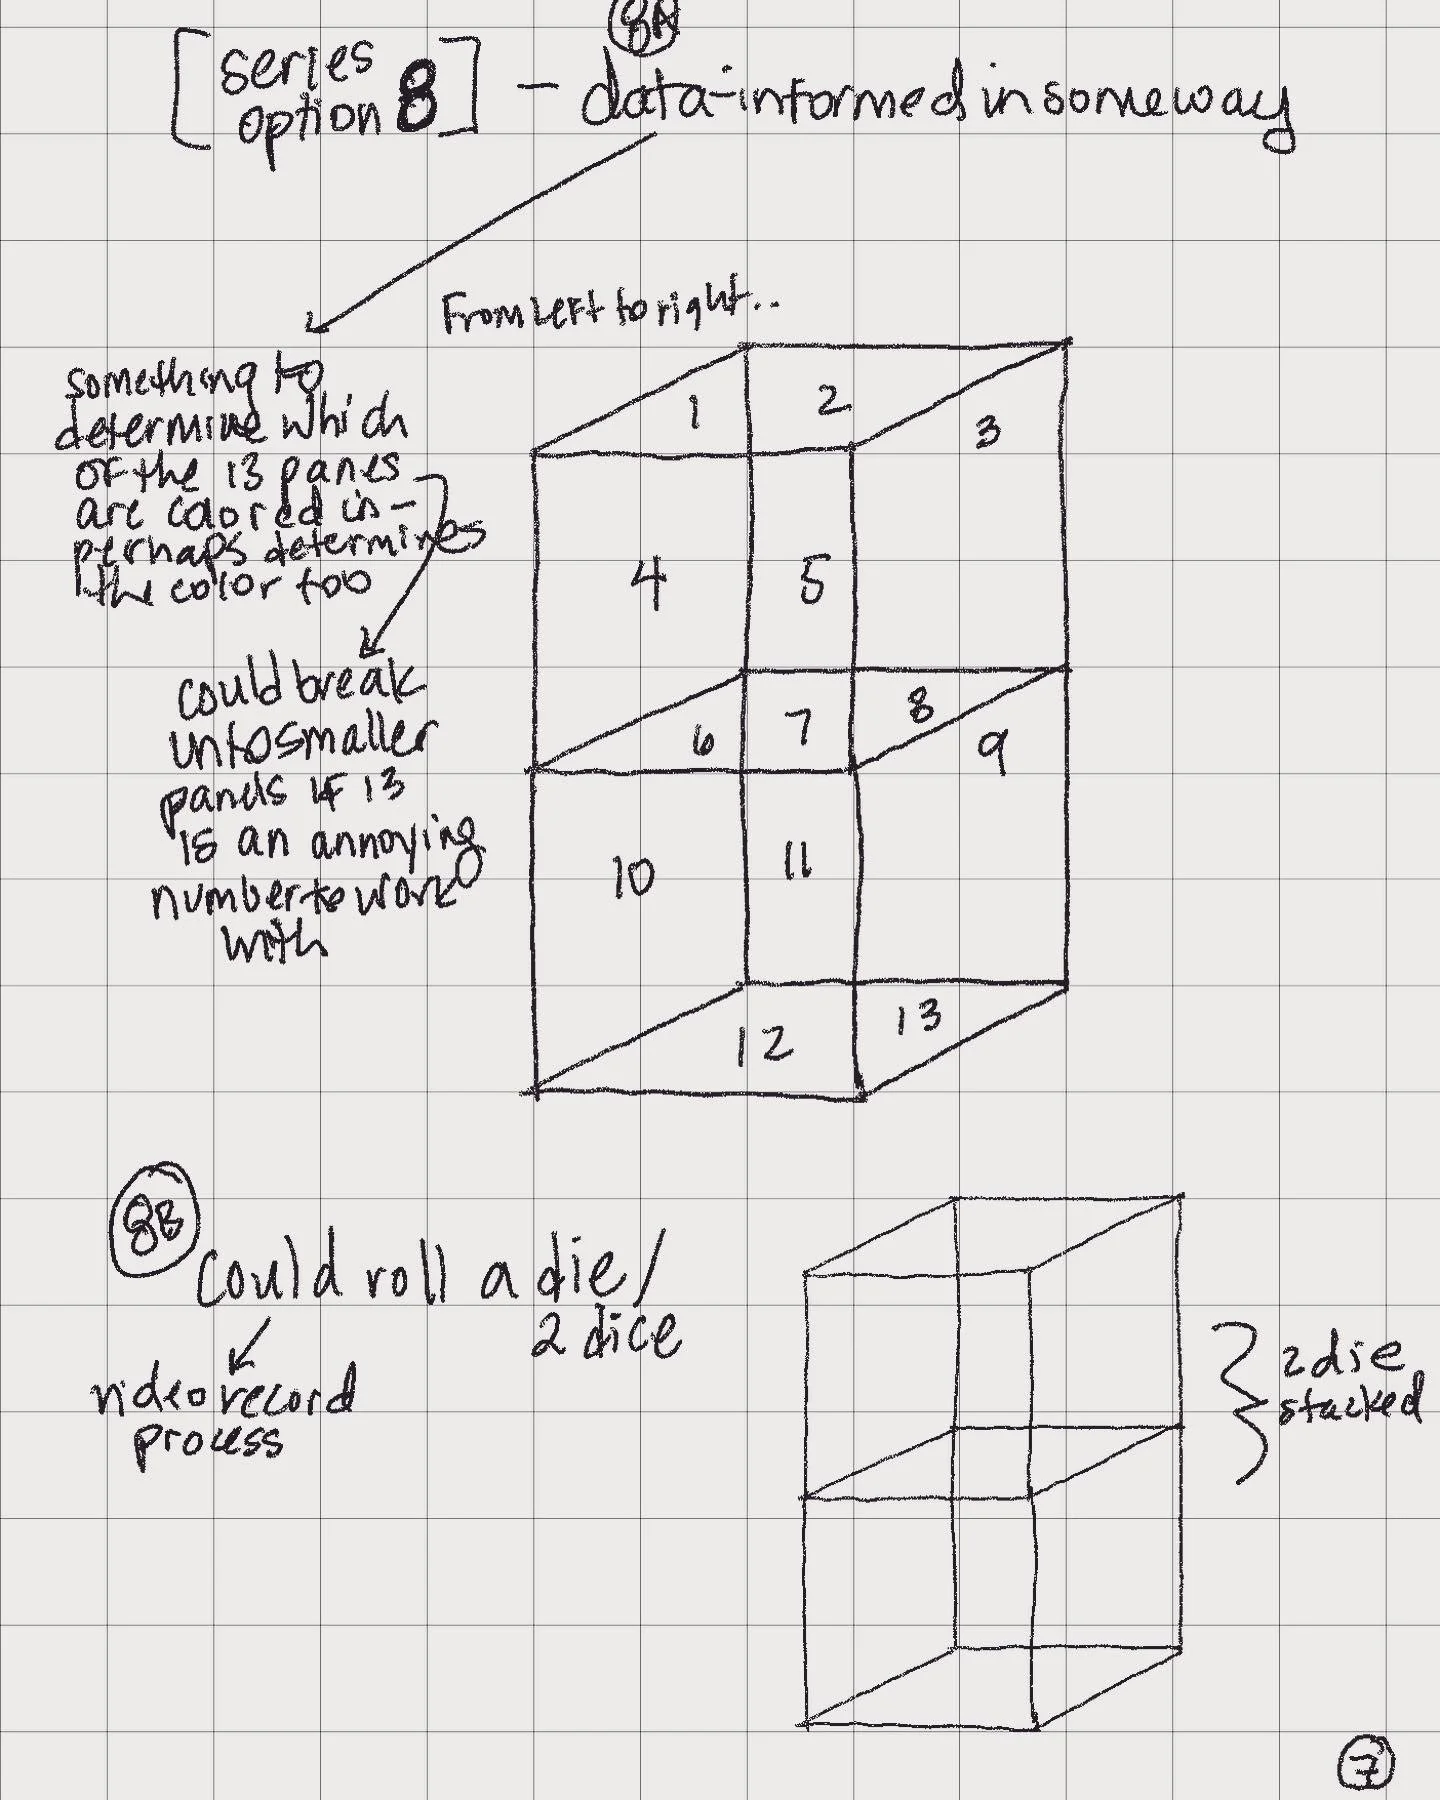 8A
[series
option 8] - data-informed in some way
From left to right..
something to
determine which
of the 13 panes
are colored in -
perhaps determines
the color too
could break
into smaller
panels if 13
is an annoying
number to work
with
1 2 3
4 5
6 7 8 9
10 11
12 13
8B
Could roll a die/
2 dice
video record
process
2 die
stacked
7